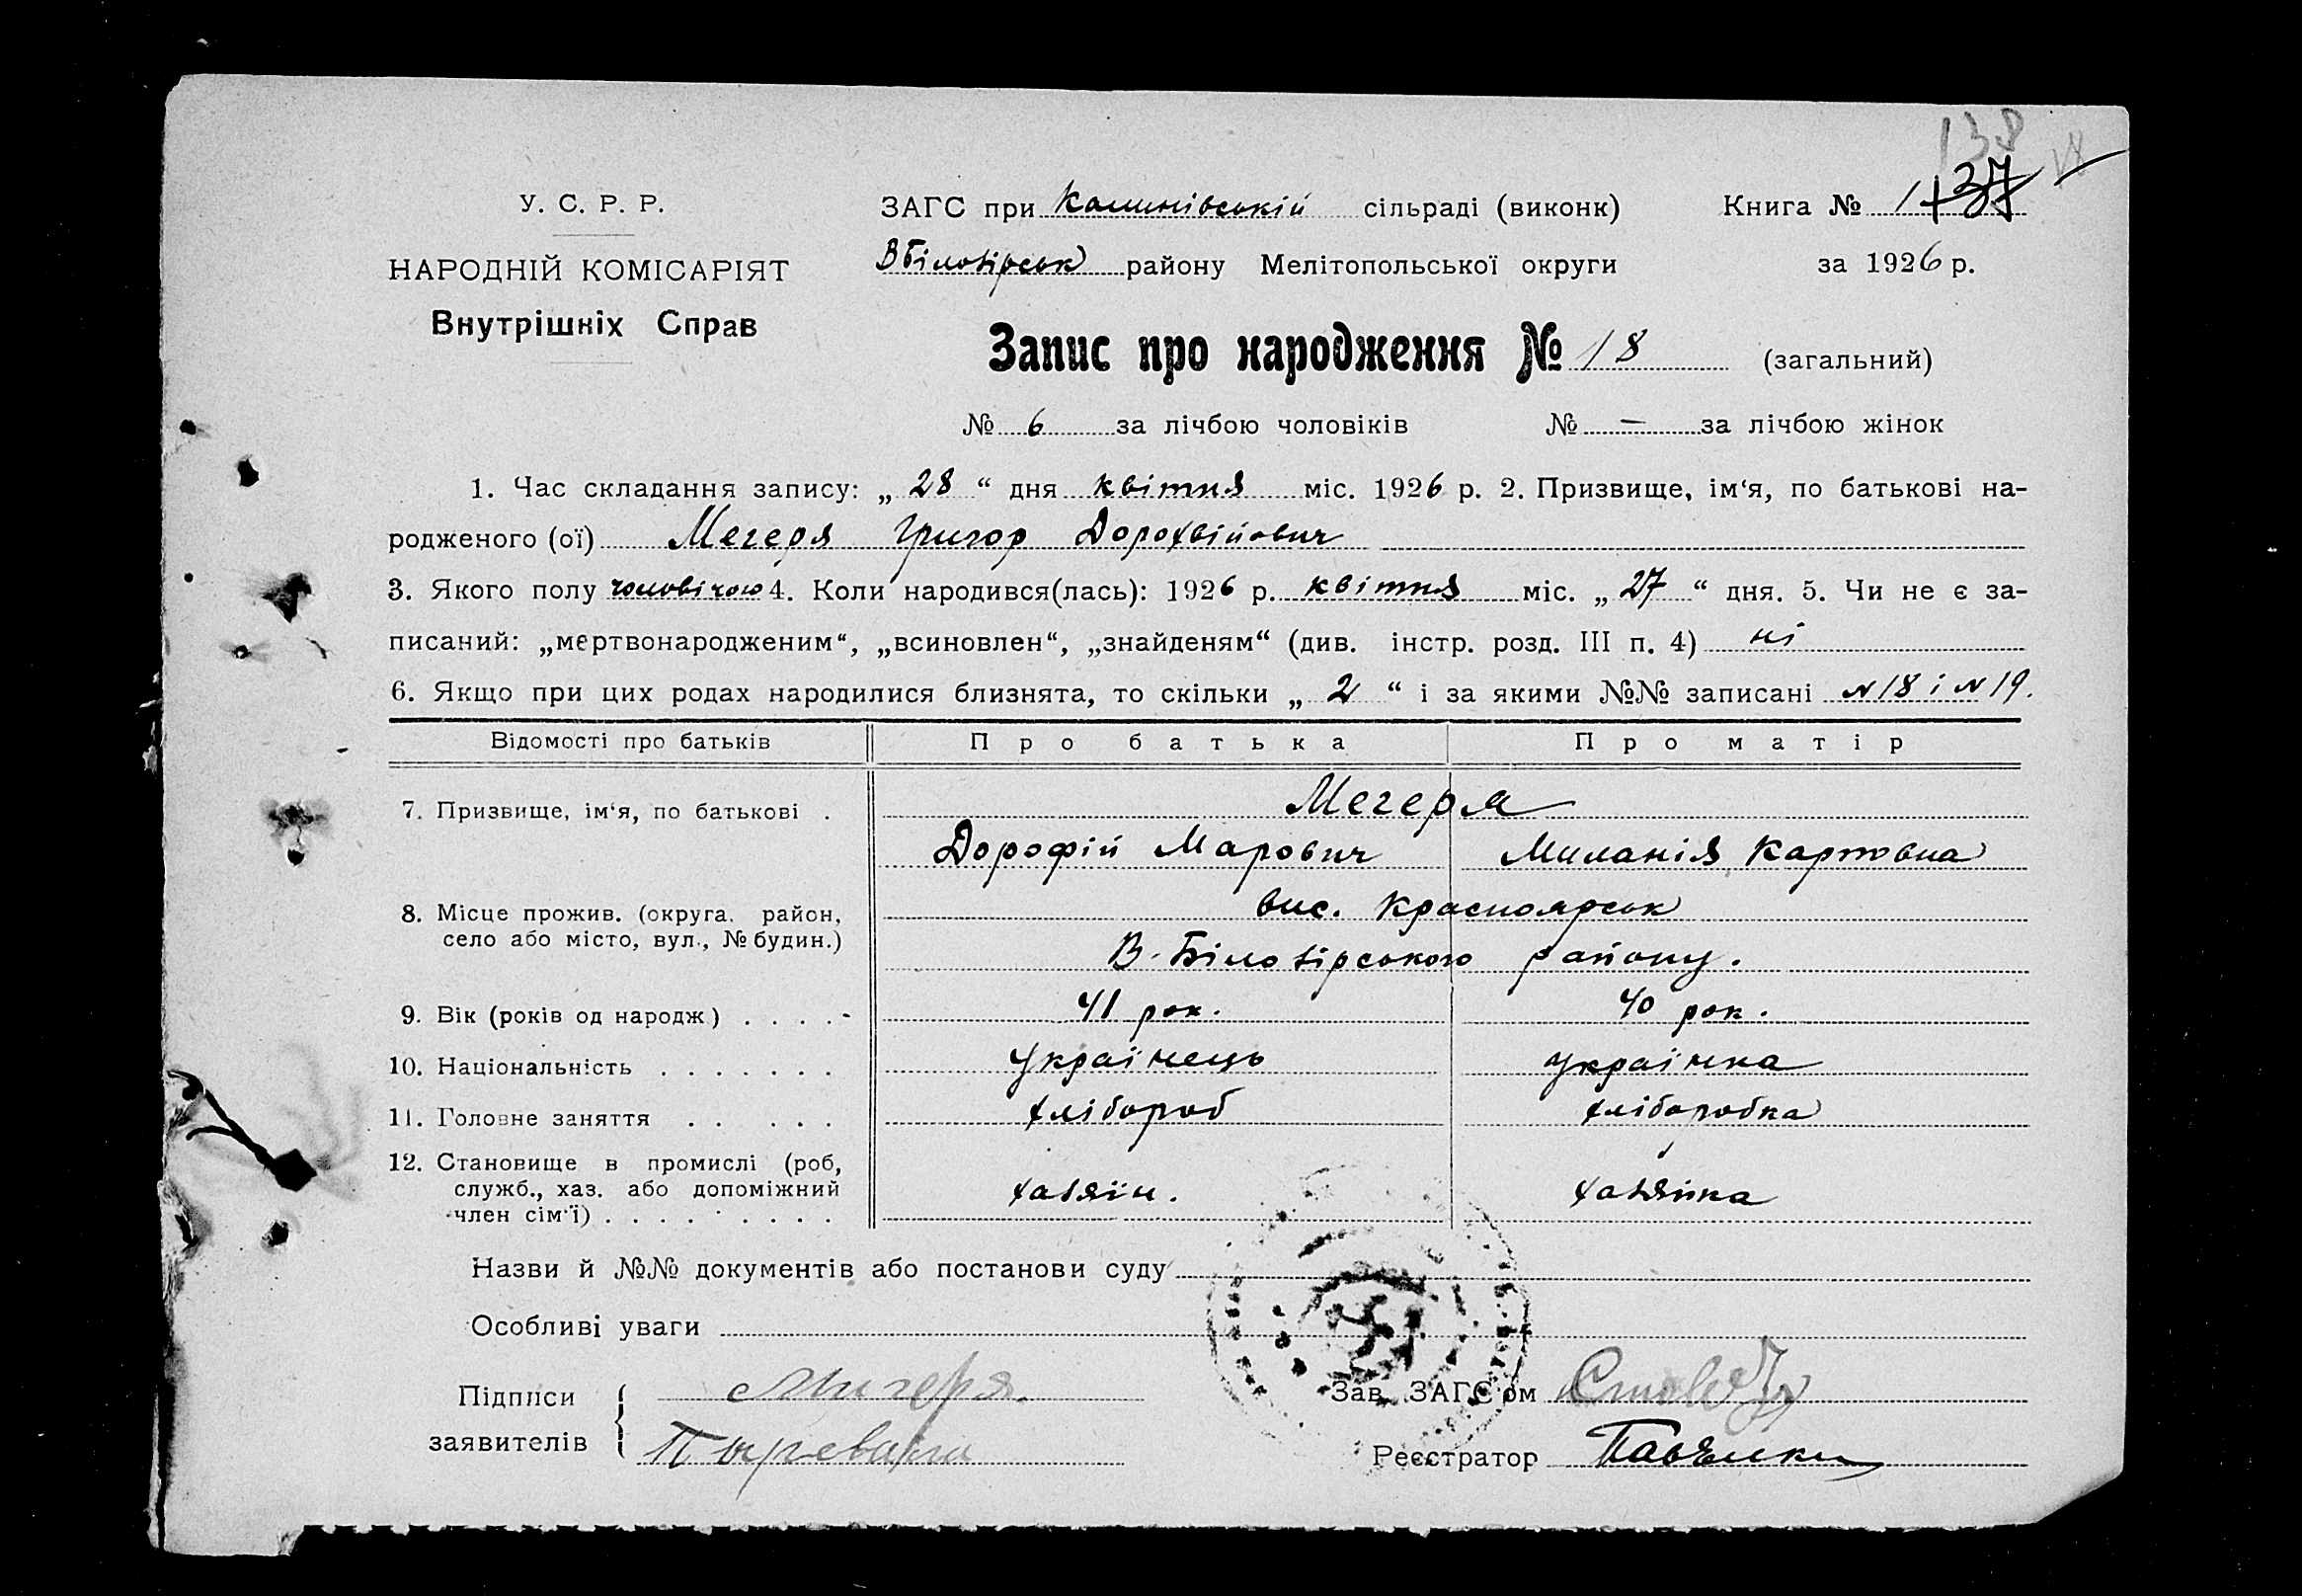 138
18
У. С. Р. Р.
ЗАГС при Калинівській сільраді (виконк)
Книга № 1 137
НАРОДНІЙ КОМІСАРІЯТ
В Білозірськ району Мелітопольської округи
за 1926 р.
Внутрішніх Справ
Запис про народження № 18 (загальний)
№ 6 за лічбою чоловіків № — за лічбою жінок
1. Час складання запису: „ 28 “ дня квітня міс. 1926 р. 2. Призвище, ім‘я, по батькові на-
родженого (ої) Мегеря Григор Дорохвійович
3. Якого полу чоловічого 4. Коли народився(лась): 1926 р. квітня міс. „ 27 “ дня. 5. Чи не є за-
писаний: „мертвонародженим“, „всиновлен“, „знайденям“ (див. інстр. розд. III п. 4) ні
6. Якщо при цих родах народилися близнята, то скільки „ 2 “ і за якими №№ записані N 18 і N 19.
Відомості про батьків Про батька Про матір
7. Призвище, ім‘я, по батькові . Мегеря
Дорофій Марович Миланія Карповна
8. Місце прожив. (округа, район, вис. Красноярськ
село або місто, вул., № будин.) В. Білозірського району.
9. Вік (років од народж) . . . . 41 рок. 40 рок.
10. Національність . . . . . . . українець українка
11. Головне заняття . . . . . хлібороб хліборобка
12. Становище в промислі (роб,
служб., хаз. або допоміжний хазяїн. хазяйка
член сім‘ї) . . . . . . . . .
Назви й №№ документів або постанови суду
Особливі уваги
Підписи Мигеря.
заявителів
Зав. ЗАГС‘ом
Реєстратор